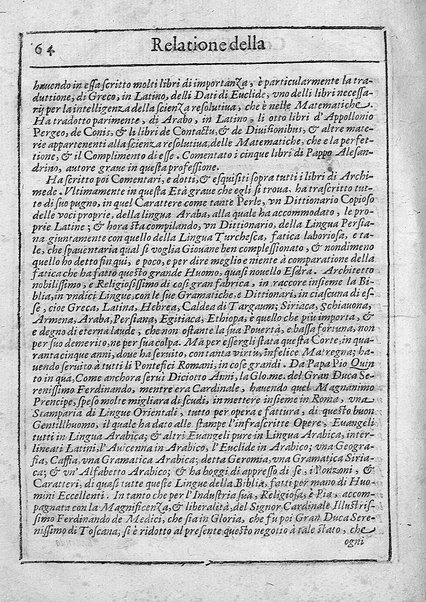 64
Relatione della
hauendo in essa scritto molti libri di importanza, è particularmente la tra-
duttione, di Greco, in Latino, delli Dati di Euclide, vno delli libri necessa-
rij per la intelligenza della scienza resolutiua, che è nelle Matematiche.
Ha tradotto parimente, di Arabo, in Latino, li otto libri d'Appollonio
Pergeo, de Conis, & li libri de Contactu, & de Diuisionibus, & altre mate-
rie appertenenti alla scienza resolutiua, delle Matematiche, che e la perfet-
tione, & il Complimento di esse. Comentato i cinque libri di Pappo Alesan-
drino, autore graue in questa professione.
Ha scritto poi Comentari, e dotti, & esquisiti sopra tutti i libri di Archi-
mede. Vltimamente in questa Età graue che egli si troua. ha trascritto tut-
to di suo pugno, in quel Carattere come tante Perle, vn Dittionario Copioso
delle voci proprie, della lingua Araba, alla quale ha accommodato, le pro-
prie Latine; & hora sta compilando, vn Dittionario, della Lingua Persia-
na giuntamente con quello della Lingua Turchesca, fatica laboriosa, e ta-
le, che spauentaria qual si voglia Giouane ben complessionato, & nondimeno
quello ho detto sin quì, e poco, e per dire meglio e niente à comparatione della
fatica che ha fatto questo grande Huomo, quasi nouello Esdra. Architetto
nobilissimo, e Religiosissimo di così gran fabrica, in raccore insieme la Bi-
blia, in vndici Lingue, con le sue Gramatiche, e Dittionari, in ciascuna di es-
se, cioe Greca, Latina, Hebrea, Caldea di Targaum; Siriaca, Schiauona,
Armena, Araba, Persiana, Egittiaca, Ethiopa, e quello che piu importa, &
e degno di eterna laude, che non ostante la sua Pouertà, e bassa fortuna, non
per suo demerito, ne per sua colpa. Mà per essergli stata questa Corte, in qua-
ranta cinque anni, doue ha seruito, con tanta virtù, infelice Matregna; ha-
uendo seruito à tutti li Pontefici Romani, in cose grandi. Da Papa Pio Quin
to in quà, Come anchora serui Diciotto Anni, la Glo. me. del Gran Duca Se-
renissimo Ferdinando, mentre era Cardinale, hauendo quel Magnanimo
Prencipe, speso molte migliara di scudi, in mettere insieme in Roma, vna
Stamparia di Lingue Orientali, tutto per opera e fattura, di questo buon
Gentilhuomo, il quale ha dato alle stampe l'infrascritte Opere, Euangeli
tutti in Lingua Arabica; & altri Euangeli pure in Lingua Arabica, inter-
lineati Latini, l'Auicenna in Arabico, l'Euclide in Arabico; vna Geogra-
fia, Cassia, vna Gramatica Arabica; detta Geromia, vna Gramatica Siria-
ca; & vn'Alfabetto Arabico; & ha hoggi di appresso di se, i Ponzoni, &
Caratteri, di quasi tutte queste Lingue della Biblia, fatti per mano di Huo-
mini Eccellenti. In tanto che per l'Industria sua, Religiosa, è Pia, accom-
pagnata con la Magnificenza, & liberalità, del Signor Cardinale Illustris-
simo Ferdinando de Medici, che sia in Gloria, che fu poi Gran Duca Sere-
nissimo di Toscana, si è ridotto al presente questo negotio à tale stato, che
ogni